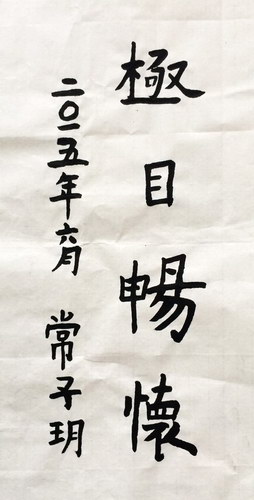 極目暢懷
二〇一五年六月 常子玥